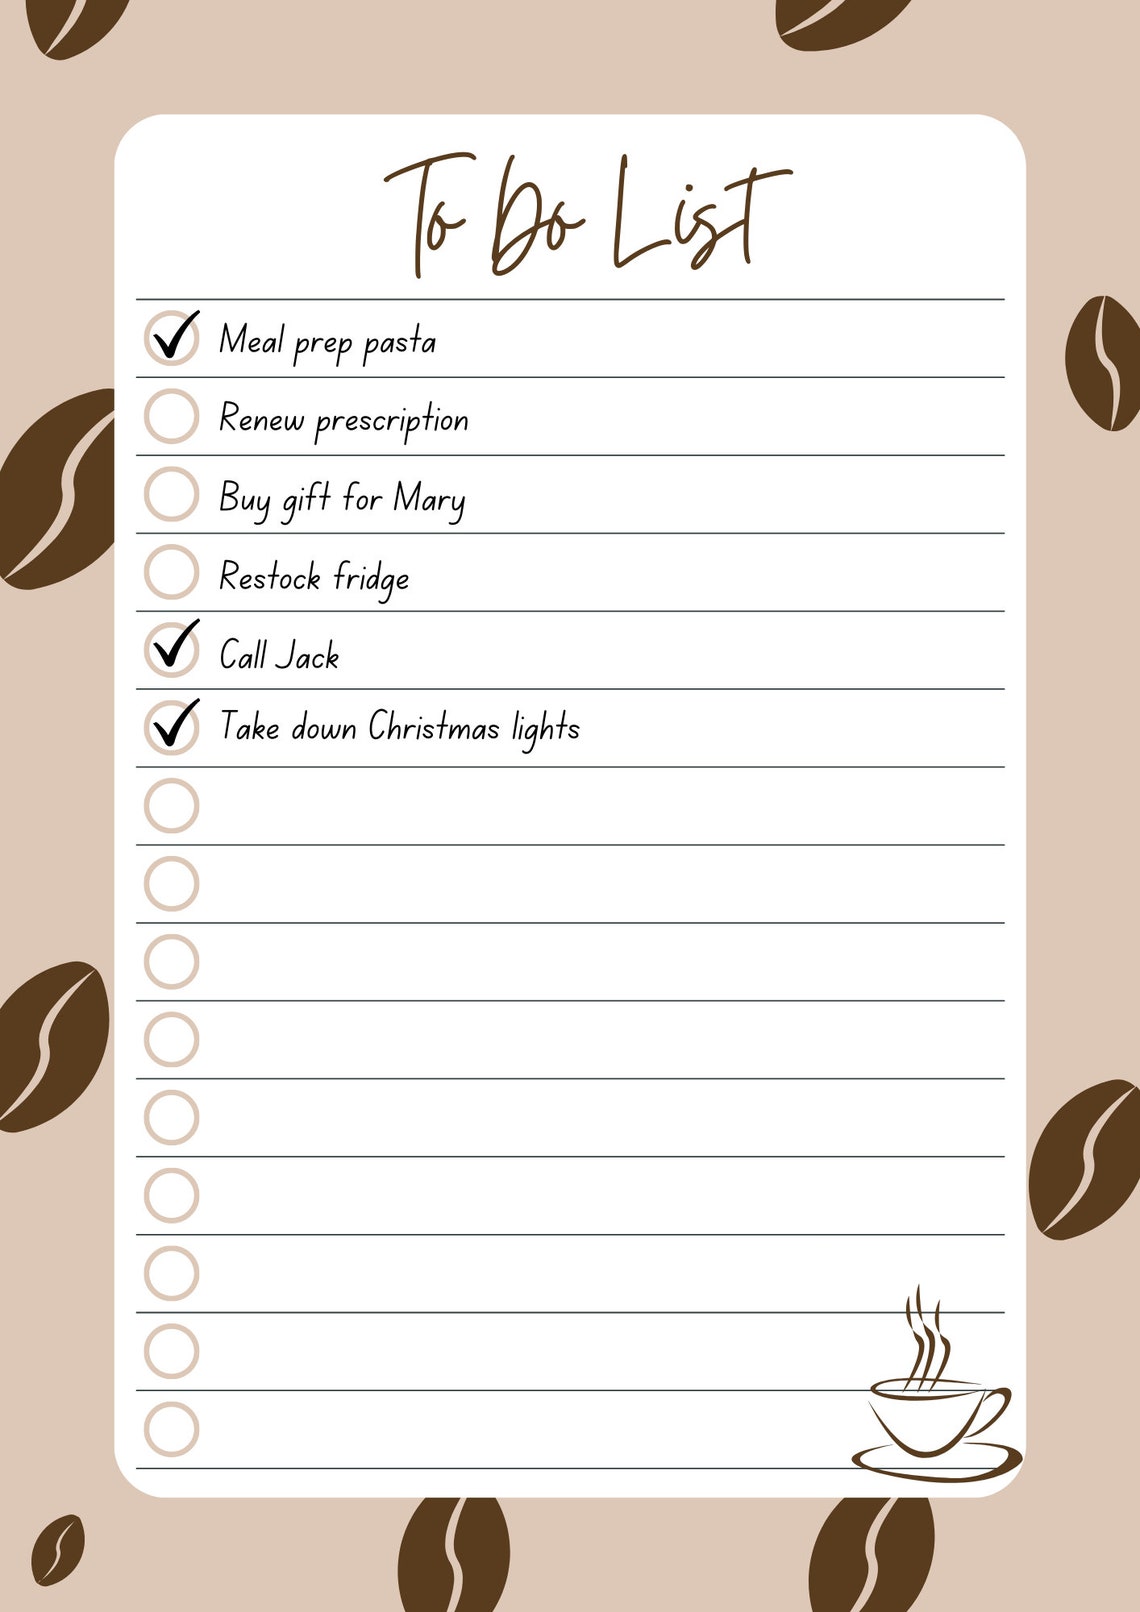 To Do List
Meal prep pasta
Renew prescription
Buy gift for Mary
Restock fridge
Call Jack
Take down Christmas lights